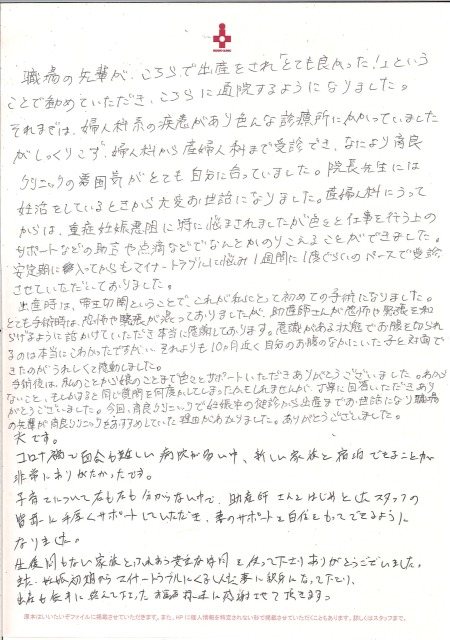 職場の先輩が、こちらで出産をされ「とても良かった!」という
ことで勧めていただき、こちらに通院するようになりました。
それまでは、婦人科系の疾患があり色んな診療所にかかっていました
がしっくりこず、婦人科から産婦人科まで受診でき、なにより斉良
クリニックの雰囲気がとても自分に合っていました。院長先生には
妊活をしているときから大変お世話になりました。産婦人科にうつって
からは、重症妊娠悪阻に特に悩まされましたが色々と仕事を行う上の
サポートなどの助言や点滴などでなんとかのりこえることができました。
安定期に入ってからもマイナートラブルに悩み1週間に1度ぐらいのペースで受診
させていただいておりました。
出産時は、帝王切開ということで、これが私にとって初めての手術になりました。
とても手術時は、恐怖や緊張が混ざっておりましたが、助産師さんが恐怖や緊張を和
らげるように話かけていただき本当に感謝しております。意識がある状態でお腹を切られ
るのは本当にこわかったですが、それよりも10ヵ月近く自分のお腹のなかにいた子と対面で
きたのがうれしくて感動しました。
手術後は、私のことから娘のことまで色々とサポートいただきありがとうございました。わから
ないこと、もしかすると同じ質問を何度かしてしまったかもしれませんが、丁寧に回答いただきあり
がとうございました。今回、斉良クリニックで妊娠中の健診から出産までお世話になり職場
の先輩が斉良クリニックをおすすめしていた理由がわかりました。ありがとうございました。
夫です。
コロナ禍で面会も難しい病院が多い中、新しい家族と宿泊できることが
非常にありがたかったです。
子育てについて右も左も分からない中で、助産師さんをはじめとしたスタッフの
皆さまに手厚くサポートしていただき、妻のサポートを自信をもってできるように
なりました。
生後間もない家族とふれあう貴重な時間を使って下さりありがとうございました。
また、妊娠初期からマイナートラブルにくるしんだ妻に親身になって下さり、
出産も无事に
原本はいいたいそファイルに掲載させていただきます。また、HPに個人情報を特定されない形で掲載させていただくこともあります。詳しくはスタッフまで。